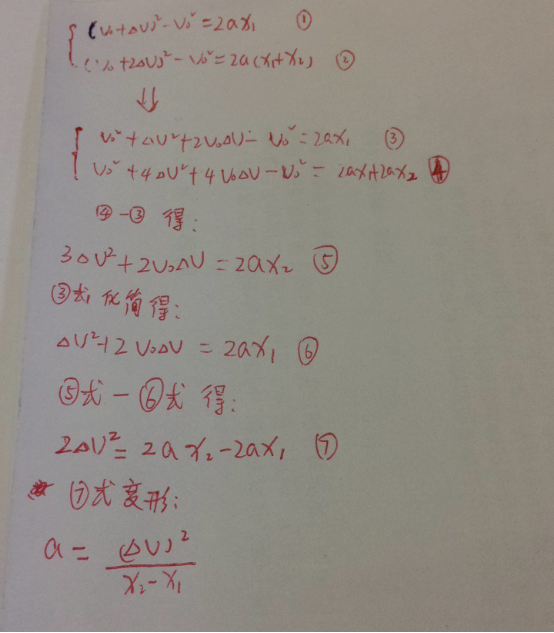 (v₀+ΔU)²-v₀²=2ax₁ ①
(v₀+2ΔU)²-v₀²=2a(x₁+x₂) ②
⇓
v₀²+ΔU²+2v₀ΔU-v₀²=2ax₁ ③
v₀²+4ΔU²+4v₀ΔU-v₀²=2ax₁+2ax₂ ④
④-③ 得:
3ΔU²+2v₀ΔU=2ax₂ ⑤
③式,化简得:
ΔU²+2v₀ΔU=2ax₁ ⑥
⑤式-⑥式 得:
2ΔU²=2ax₂-2ax₁ ⑦
⑦式变形:
a=(ΔU)²/(x₂-x₁)